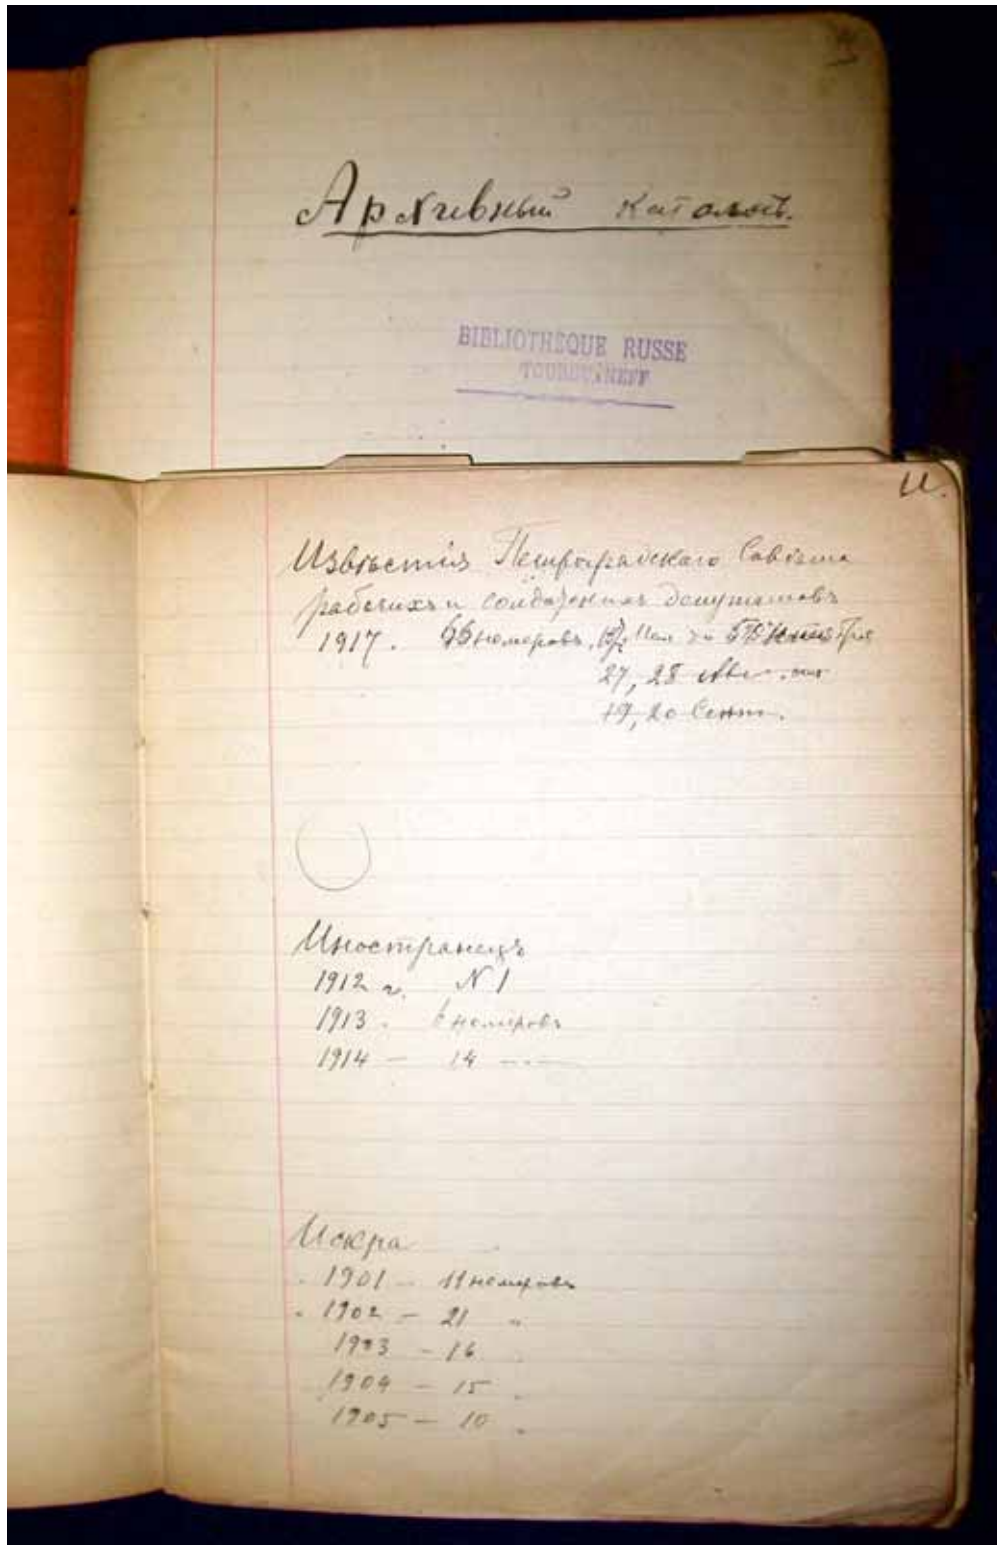 Архивный каталогъ.
BIBLIOTHEQUE RUSSE
TOURGUENEFF
И.
Извѣстія Петроградскаго Совѣта
рабочихъ и солдатскихъ депутатовъ
1917. номеровъ,
27, 28
19, 20 Сент.
Иностранецъ
1912 г. N 1
1913. 6 номеровъ
1914 — 14 —
Искра
1901 — 11 номеровъ
1902 — 21 "
1903 — 16 "
1904 — 15 "
1905 — 10 "